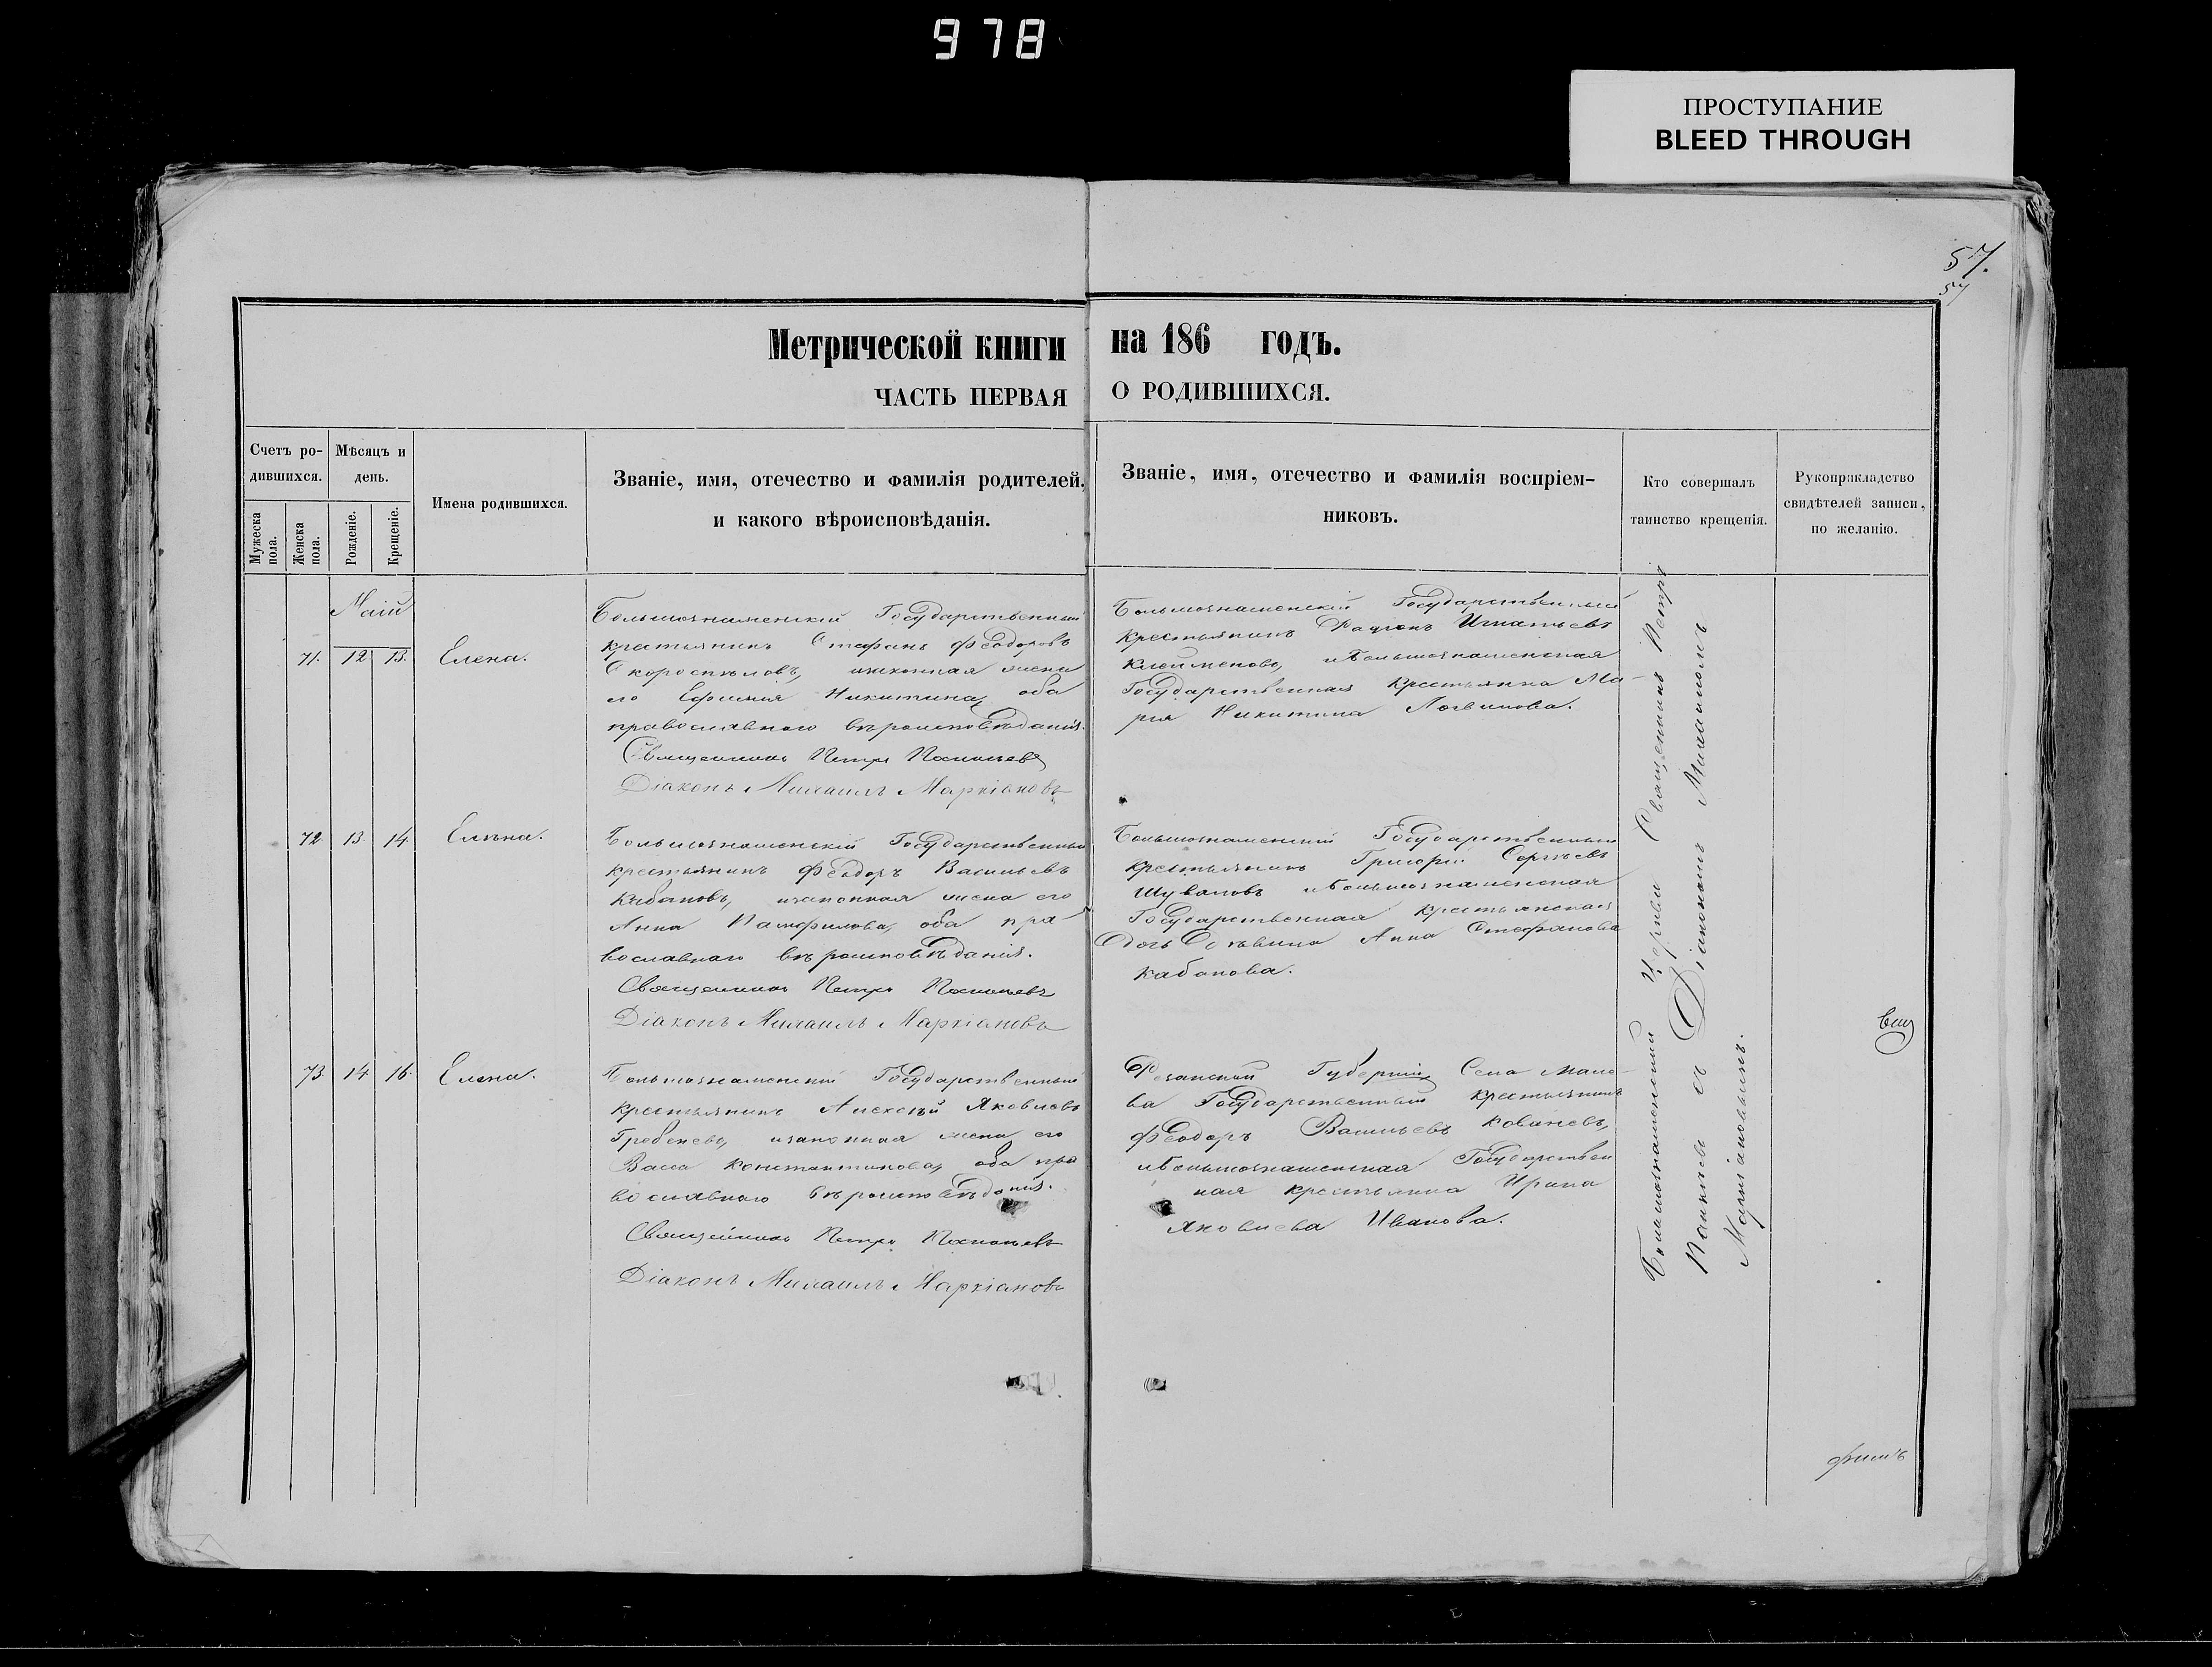 978
ПРОСТУПАНИЕ
BLEED THROUGH
57.
57
Метрической книги на 186 годъ.
ЧАСТЬ ПЕРВАЯ О РОДИВШИХСЯ.
Счетъ ро-
дившихся.
Мужеска пола.
Женска пола.
Мѣсяцъ и
день.
Рожденіе.
Крещеніе.
Имена родившихся.
Званіе, имя, отечество и фамилія родителей,
и какого вѣроисповѣданія.
Званіе, имя, отечество и фамилія воспріем-
никовъ.
Кто совершалъ
таинство крещенія.
Рукоприкладство
свидѣтелей записи,
по желанію.
Маій
71. 12 13. Елена.
Большознаменскій Государственный
крестьянинъ Стефанъ Феодоровъ
Скороспѣловъ, изаконная жена
его Ефимия Никитина, оба
православнаго вѣроисповѣданія.
Священникъ Петръ
Діаконъ Михаилъ Маркіановъ
Большознаменскій Государственный
крестьянинъ Родіонъ Игнатьевъ
Клейменовъ, иБольшознаменская
Государственная крестьянка Ма-
рія Никитина Логвинова.
72. 13 14. Елѣна.
Большознаменскій Государственный
крестьянинъ Феодоръ Васильевъ
Кабановъ, изаконная жена его
Анна Памфилова, оба пра-
вославнаго вѣроисповѣданія.
Священникъ Петръ
Діаконъ Михаилъ Маркіановъ
Большознаменскій Государственный
крестьянинъ Григорій Сергѣевъ
Шуваловъ иБольшознаменская
Государственная крестьянская
Дочь Дѣвица Анна Стефанова
Кабанова.
73. 14 16. Елена.
Большознаменскій Государственный
крестьянинъ Алексѣй Яковлевъ
Гребеневъ, изаконная жена его
Васса Константинова, оба пра
вославнаго вѣроисповѣданія.
Священникъ Петръ
Діаконъ Михаилъ Маркіановъ
Резанской Губерніи Села
Государственный крестьянинъ
Феодоръ Васильевъ Ковалевъ,
иБольшознаменская Государствен
ная крестьянка Ирина
Яковлева Иванова.
Большознаменской Церкви Священникъ Петръ
съ Діакономъ Михаиломъ
Маркіановымъ.